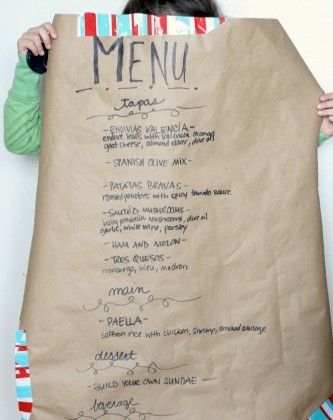 MENU
tapas
- ENDIVIAS VALENCIA -
endive leaves with valencia oranges
goat cheese, almond sliver, olive oil
- SPANISH OLIVE MIX -
PATATAS BRAVAS -
roasted potatoes with spicy tomato sauce
- SAUTÉD MUSHROOMS -
baby portabella mushrooms, olive oil
garlic, white wine, parsley
- HAM AND MELON -
- TRES QUESOS -
manchego, bleu,
main
- PAELLA -
saffron rice with chicken, shrimp, smoked sausage
dessert
- BUILD YOUR OWN SUNDAE -
beverage